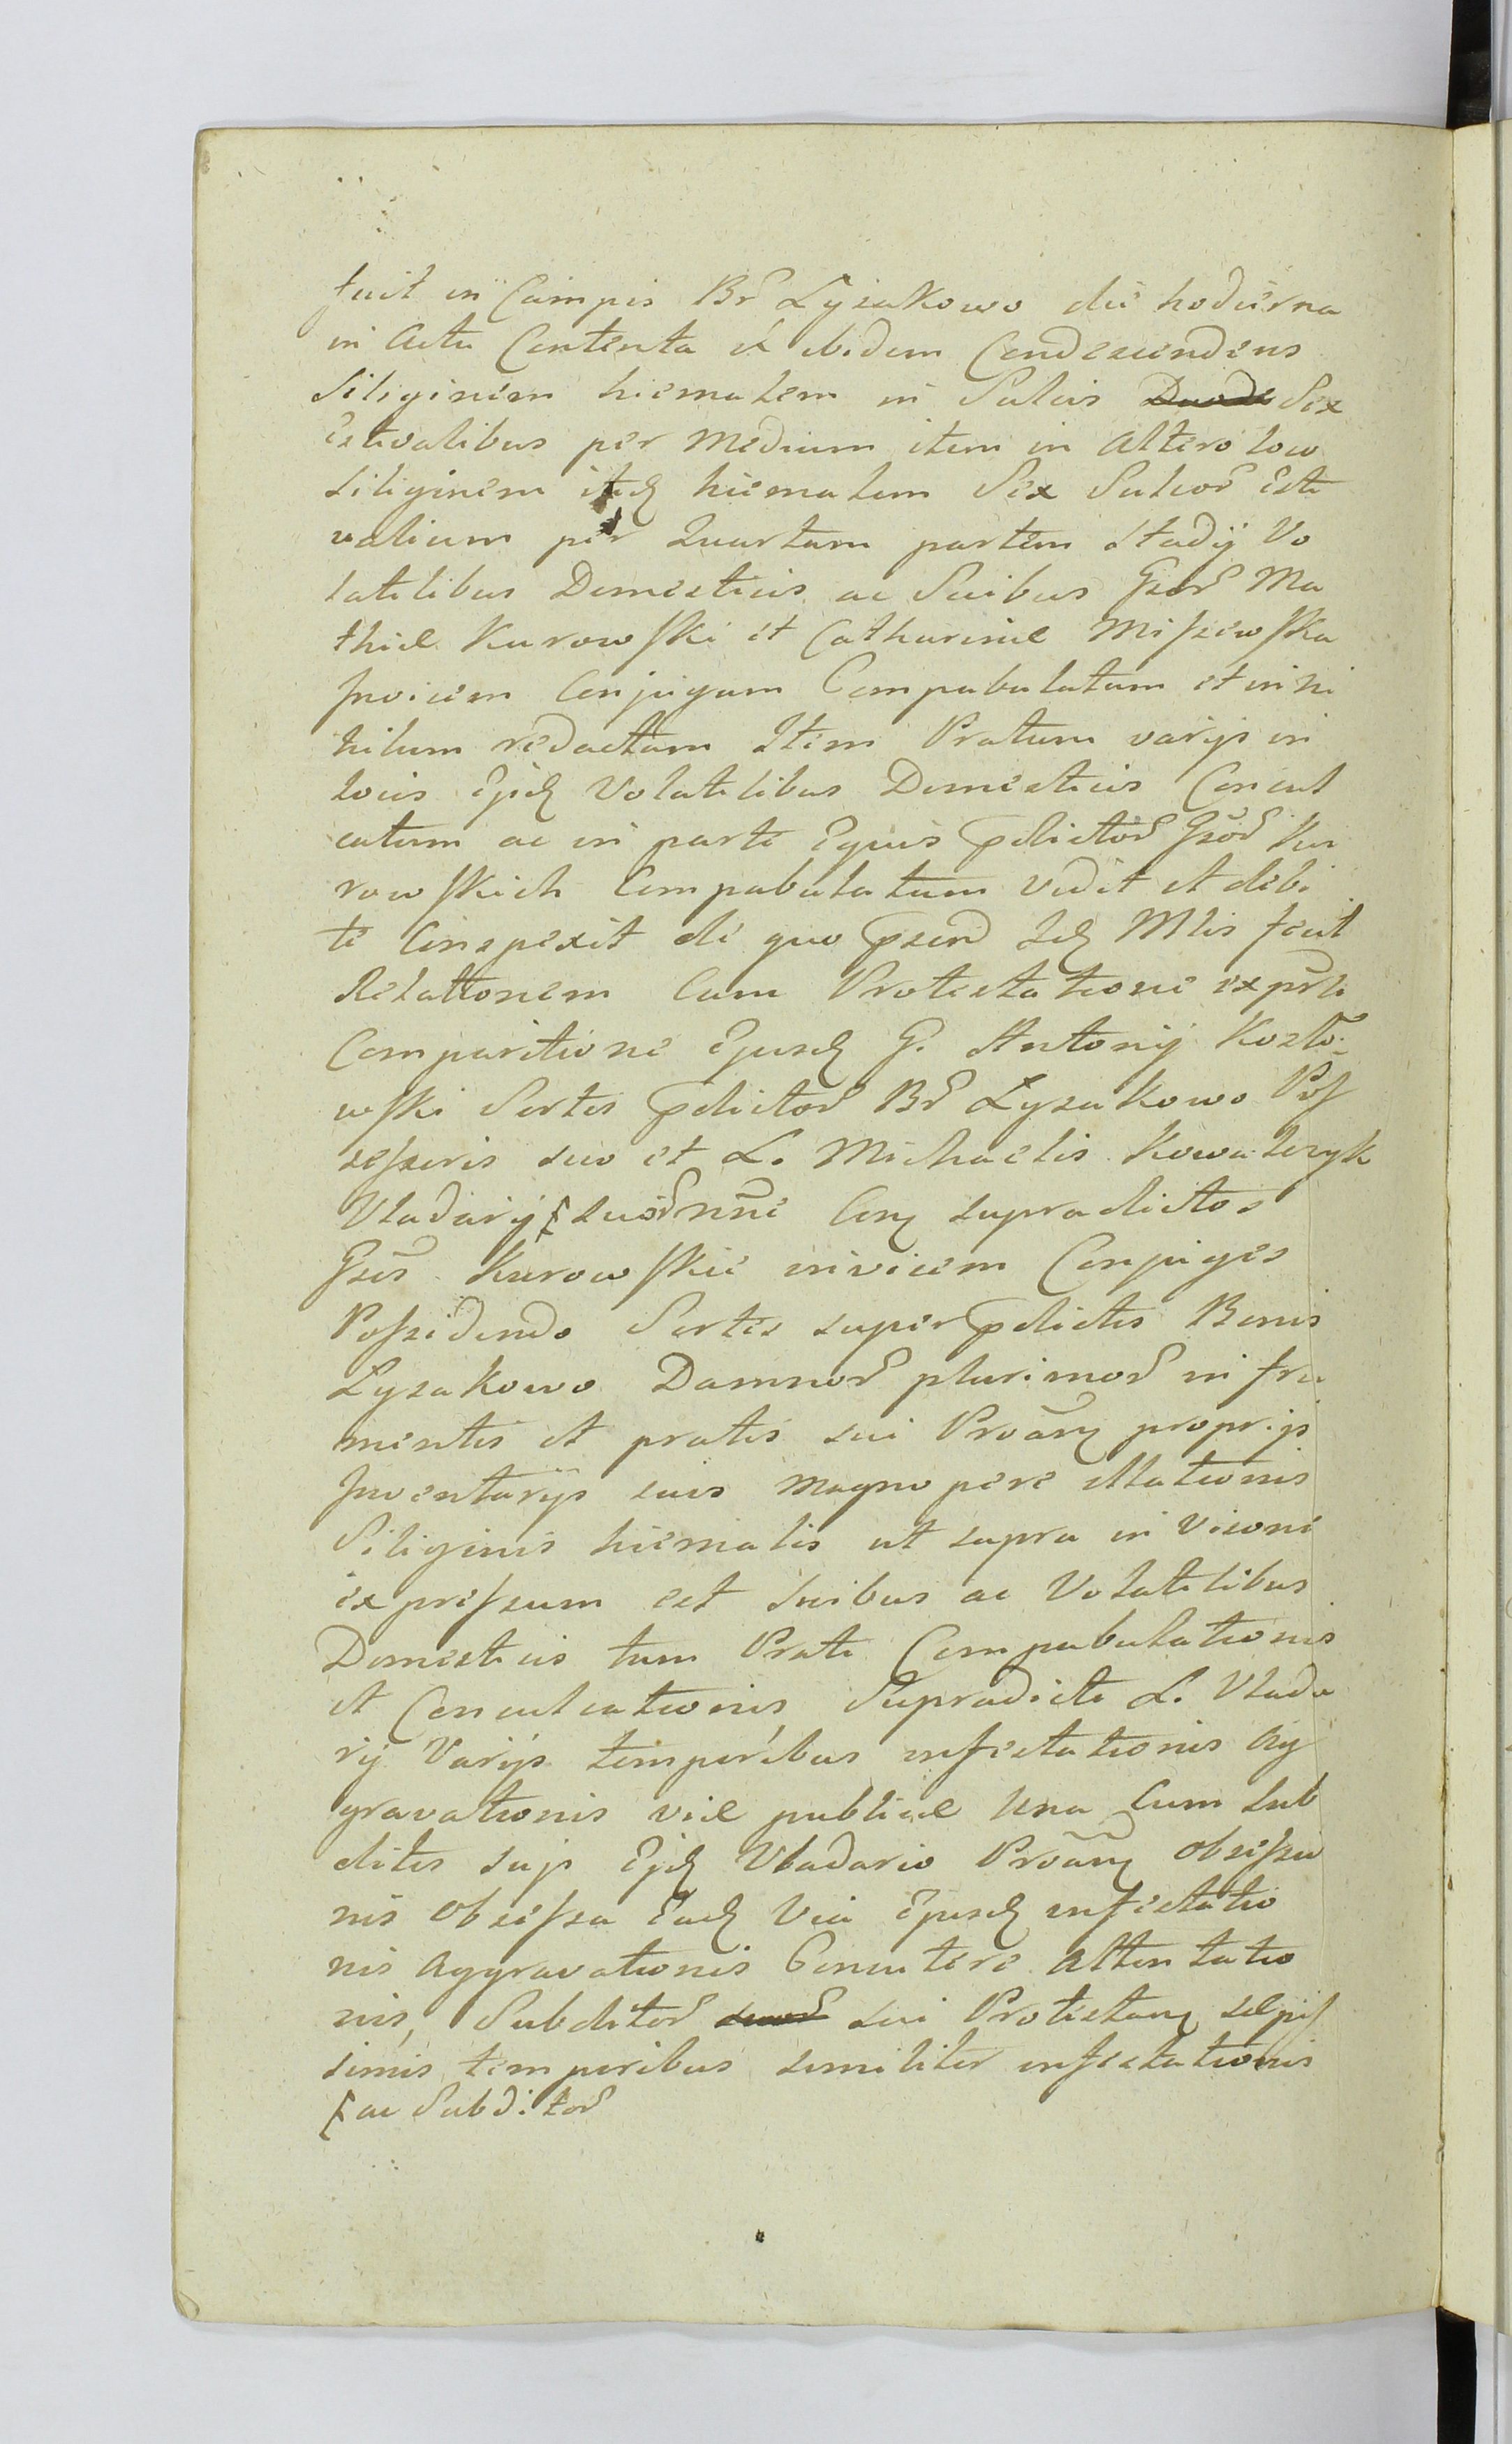 fuit in Campis Br Lysakowo die hodierna
in Actu Contenta et ibidem Condescendens
Siliginem hiematem in Sulcis Duode Sex
Estivalibus per Medium item in Altero loco
Siliginem itidẽ hiematem Sex Sulcor Esti
valium per Quartam partem Stadij Vo
latilibus Domesticis ac Suibus Gsor Ma
thiæ Kurowski et Catharinæ Miszewska
Invicem Conjugum Compabulatum et in ni
hilum redactum Item Pratum varijs in
locis Ejsd Volatilibus Domesticis Concul
catum ac in parte Equis pdictor Gsor Ku
rowskich Compabulatum vidit et debi
te Conspexit de quo psend Idẽ Mlis fecit
Relationem Cum Protestatione expsta
Comparitione Ejusd G. Antonij Kozło-
wski Sortis pdictor Br Lysakowo Pos
sessoris suo et L. Michaelis Kowalczyk
Vladarij suor nõe Conq supradictos
Gsos Kurowskie invicem Conjuges
Possidendo Sortes super pdictis Bonis
Lysakowo Damnor plurimor in fru
mentis et pratis sui Proanq proprijs
Inventarijs suis magnopere illationis
Siliginis hiemalis ut supra in Visone
expressum est Suibus ac Volatilibus
Domesticis tum Prati Compabulationis
et Conculcationis, Supradicti L. Vlada
rij Varijs temporibus infestationis Ag
gravationis viæ publicæ Una Cum Sub
ditis suis Ejsd Vladario Proanq obsessio
nis obsessa Eadẽ Via Ejusd infestatio
nis Aggravationis Concutere Attentatio
nis, Subditor suor sui Protestanq sæpis
simis temporibus similiter infestationis
ac Subditor